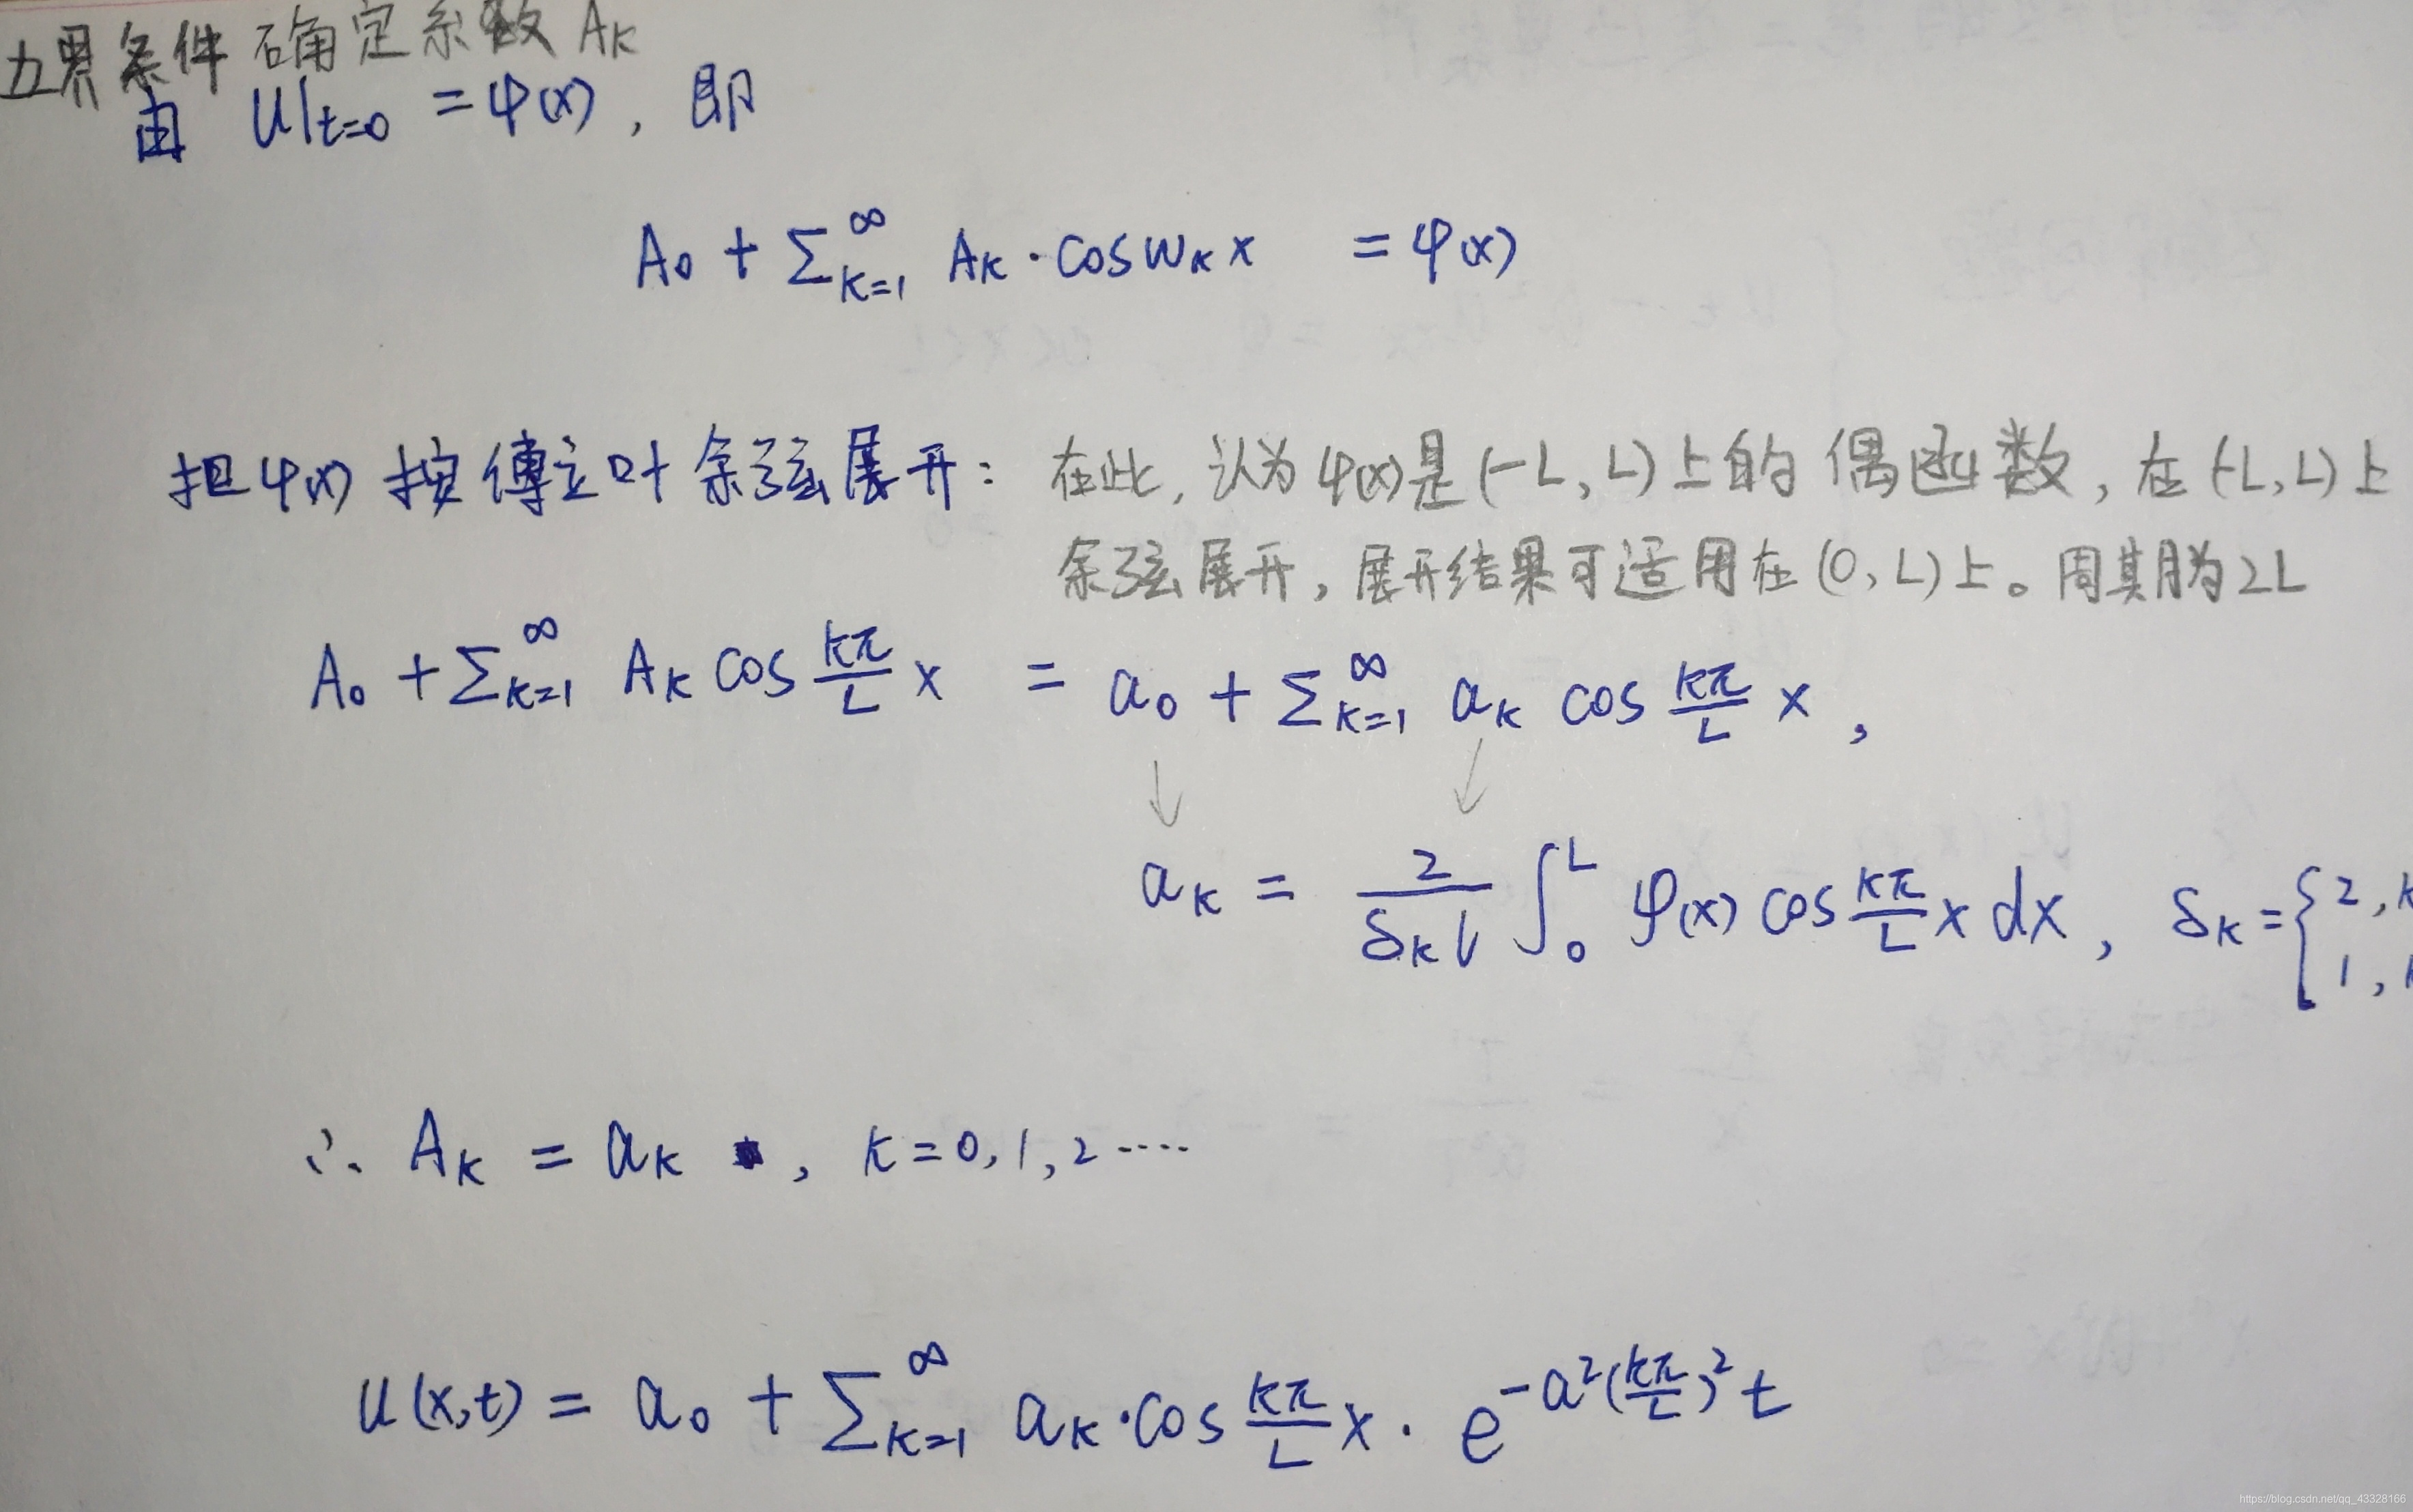 界条件 确定系数 Aₖ
由 U|t=0 = φ(x), 即
A₀ + ∑ₖ₌₁^∞ Aₖ · cos wₖ x = φ(x)
把φ(x) 按傅立叶余弦展开: 在此, 认为φ(x)是(-L, L)上的偶函数, 在(-L, L)上
余弦展开, 展开结果可适用在(0, L)上。周期为2L
A₀ + ∑ₖ₌₁^∞ Aₖ cos kπ/L x = a₀ + ∑ₖ₌₁^∞ aₖ cos kπ/L x ,
↓ ↓
aₖ = 2/(δₖ l) ∫₀^L φ(x) cos kπ/L x dx, δₖ = { 2, 1,
∴ Aₖ = aₖ , k = 0, 1, 2 ····
u(x,t) = a₀ + ∑ₖ₌₁^∞ aₖ · cos kπ/L x · e^(-a²(kπ/L)² t)
https://blog.csdn.net/qq_43328166